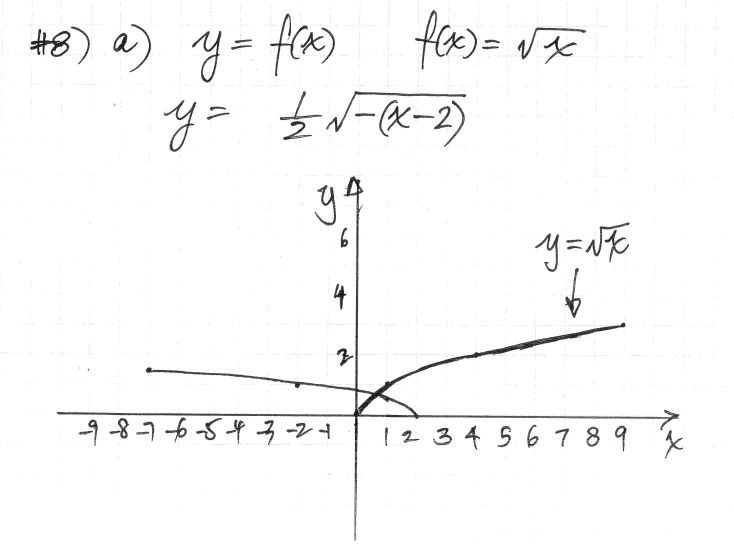 #8) a) y = f(x) f(x) = √x
y = 1/2 √-(x-2)
y
6
y=√x
4
2
-9 -8 -7 -6 -5 -4 -3 -2 -1 1 2 3 4 5 6 7 8 9 x